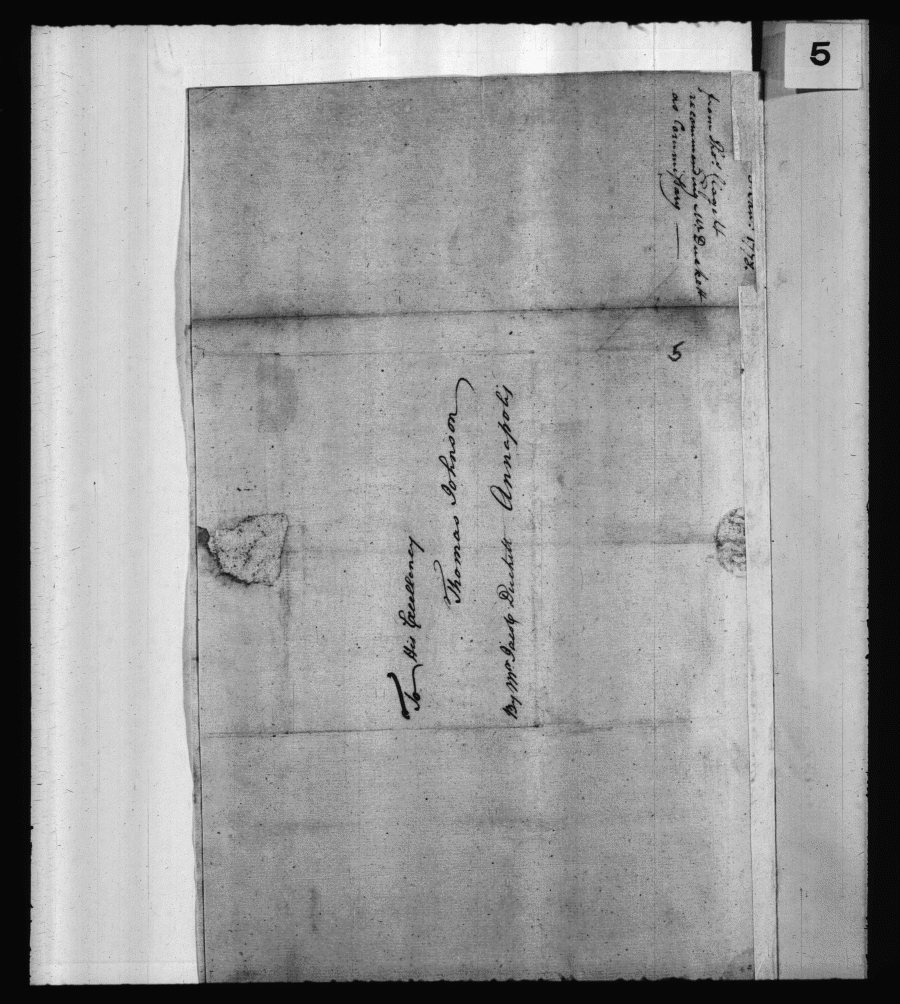 5
Jan: 1778.
from Thos. Clagett
recommending Mr Duckett
as Commissary
5
To His Excellency
Thomas Johnson
Annapolis
By Mr Jacob Duckett